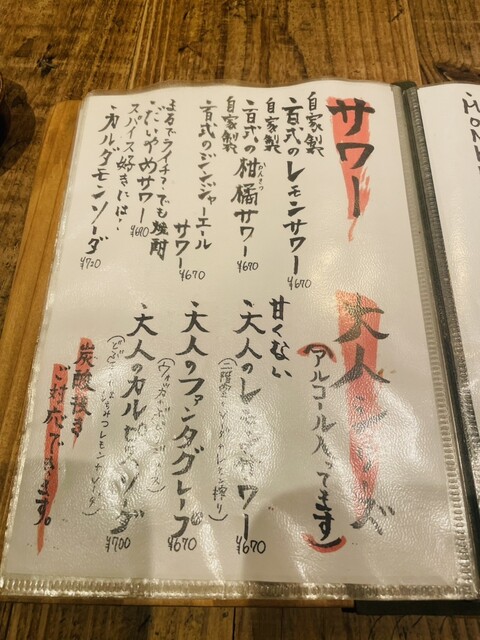 サワー
自家製
百式のレモンサワー ¥670
自家製
百式の柑橘サワー ¥670
かんきつ
自家製
百式のジンジャーエール
サワー ¥670
まるでライチ?でも焼酎
だいやめサワー ¥690
スパイス好きには…
カルダモンソーダ ¥720
大人シリーズ
(アルコール入ってます)
甘くない
大人のレモンサワー ¥670
大人のファンタグレープ ¥670
大人のカルピスソーダ ¥700
炭酸抜き
ご対応できます。